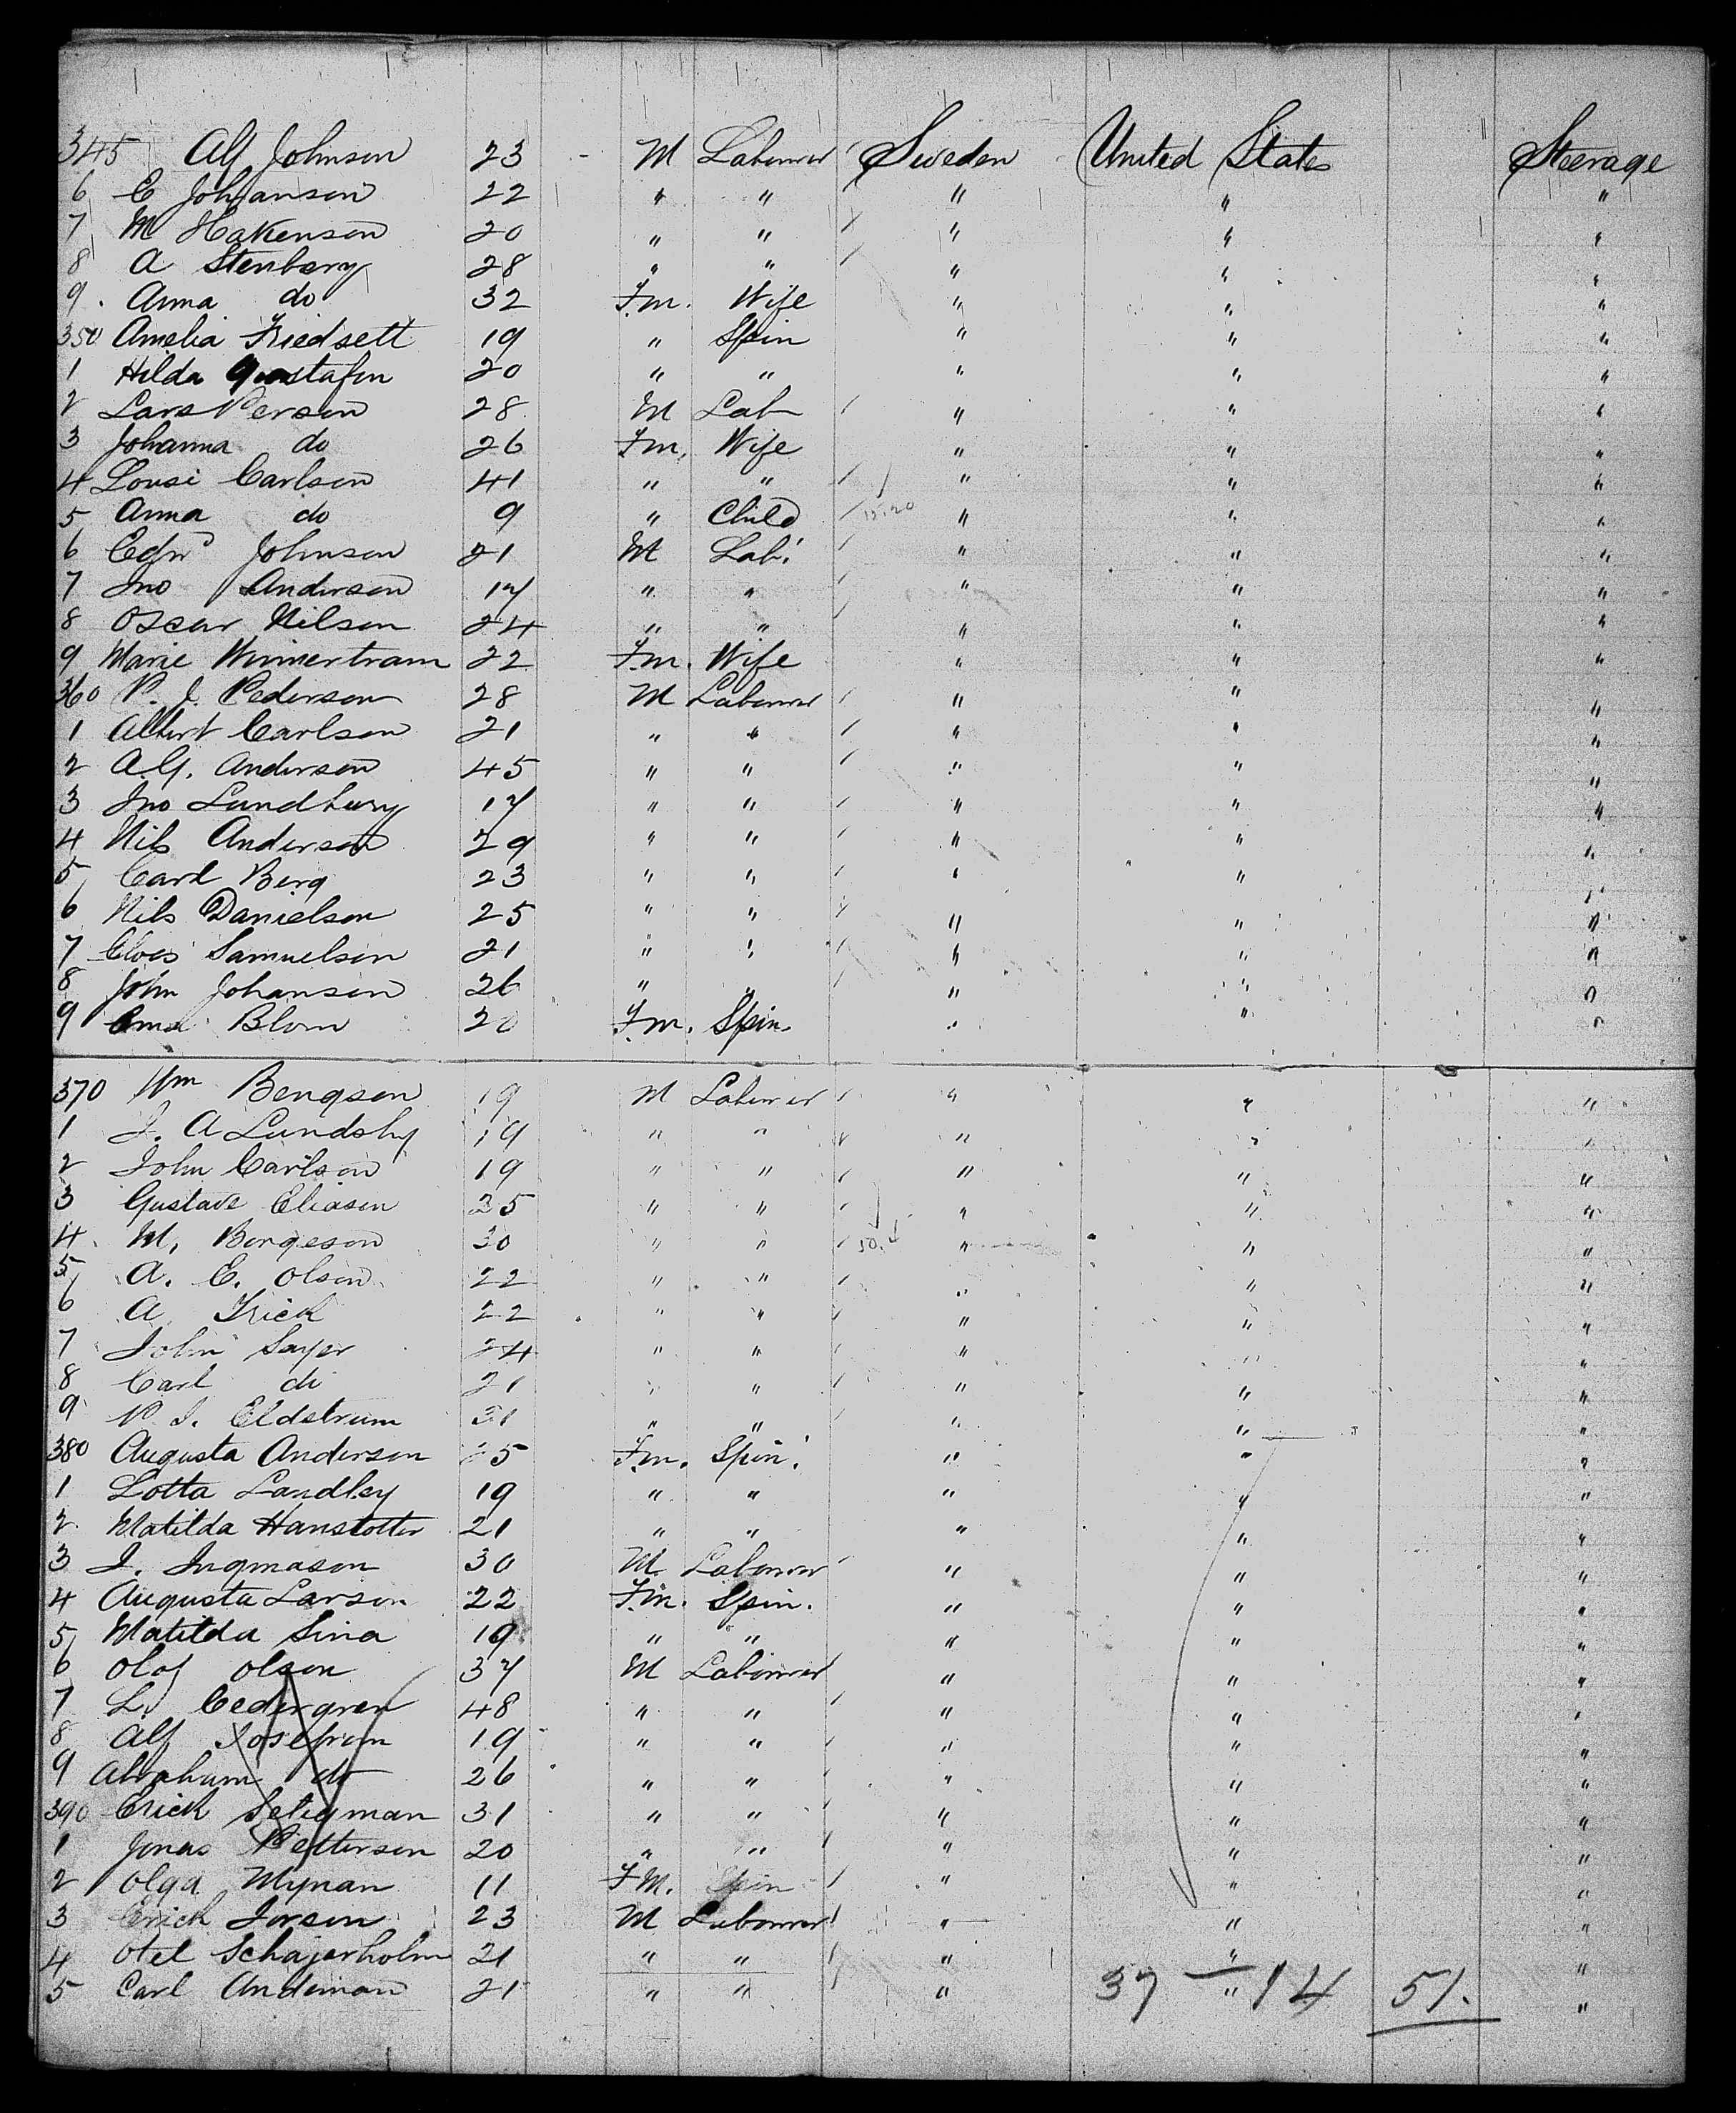 345 Alf Johnson 23 - M Labourer Sweden United States Steerage
6 C Johanson 22 " " " " "
7 M Hakenson 20 " " " " "
8 A Stenberg 28 " " " " "
9 Anna do 32 Fm. Wife " " "
350 Amelia Friedsett 19 " Spin " " "
1 Hilda Gustafsn 20 " " " " "
2 Lars Person 28 M Lab " " "
3 Johanna do 26 Fm. Wife " " "
4 Lousi Carlson 41 " " " " "
5 Anna do 9 " Child " " "
6 Edwd Johnson 21 M Lab. " " "
7 Jno Anderson 17 " " " " "
8 Oscar Nilson 24 " " " " "
9 Marie Winnertram 22 Fm. Wife " " "
360 P. J. Pederson 28 M Labourer " " "
1 Albert Carlson 21 " " " " "
2 A.G. Anderson 45 " " " " "
3 Jno Lundburg 17 " " " " "
4 Nils Anderson 29 " " " " "
5 Carl Berg 23 " " " " "
6 Nils Danielson 25 " " " " "
7 Cloes Samuelson 21 " " " " "
8 John Johanson 26 " " " " "
9 Ema Blom 20 Fm. Spin. " " "
370 Wm Bengson 19 M Labourer " " "
1 J. A Lundsby 19 " " " " "
2 John Carlson 19 " " " " "
3 Gustave Eliason 25 " " " " "
4 M. Borgeson 30 " " " " "
5 A. E. Olson 22 " " " " "
6 A Frick 22 " " " " "
7 John Sayer 24 " " " " "
8 Carl do 21 " " " " "
9 P. J. Eldstrum 31 " " " " "
380 Augusta Anderson 25 Fm. Spin. " " "
1 Lotta Landley 19 " " " " "
2 Matilda Hanstotter 21 " " " " "
3 J. Ingmason 30 M Labourer " " "
4 Augusta Larson 22 Fm. Spin. " " "
5 Matilda Sina 19 " " " " "
6 Olof Olson 37 M Labourer " " "
7 L. Cedergren 48 " " " " "
8 Alf Josefson 19 " " " " "
9 Abraham do 26 " " " " "
390 Erick Seligman 31 " " " " "
1 Jonas Petterson 20 " " " " "
2 Olga Mynan 11 FM. Spin " " "
3 Erick Jorson 23 M Labourer " " "
4 Otel Schajerholm 21 " " " " "
5 Carl Andeman 21 " " " " "
37 — 14 51.